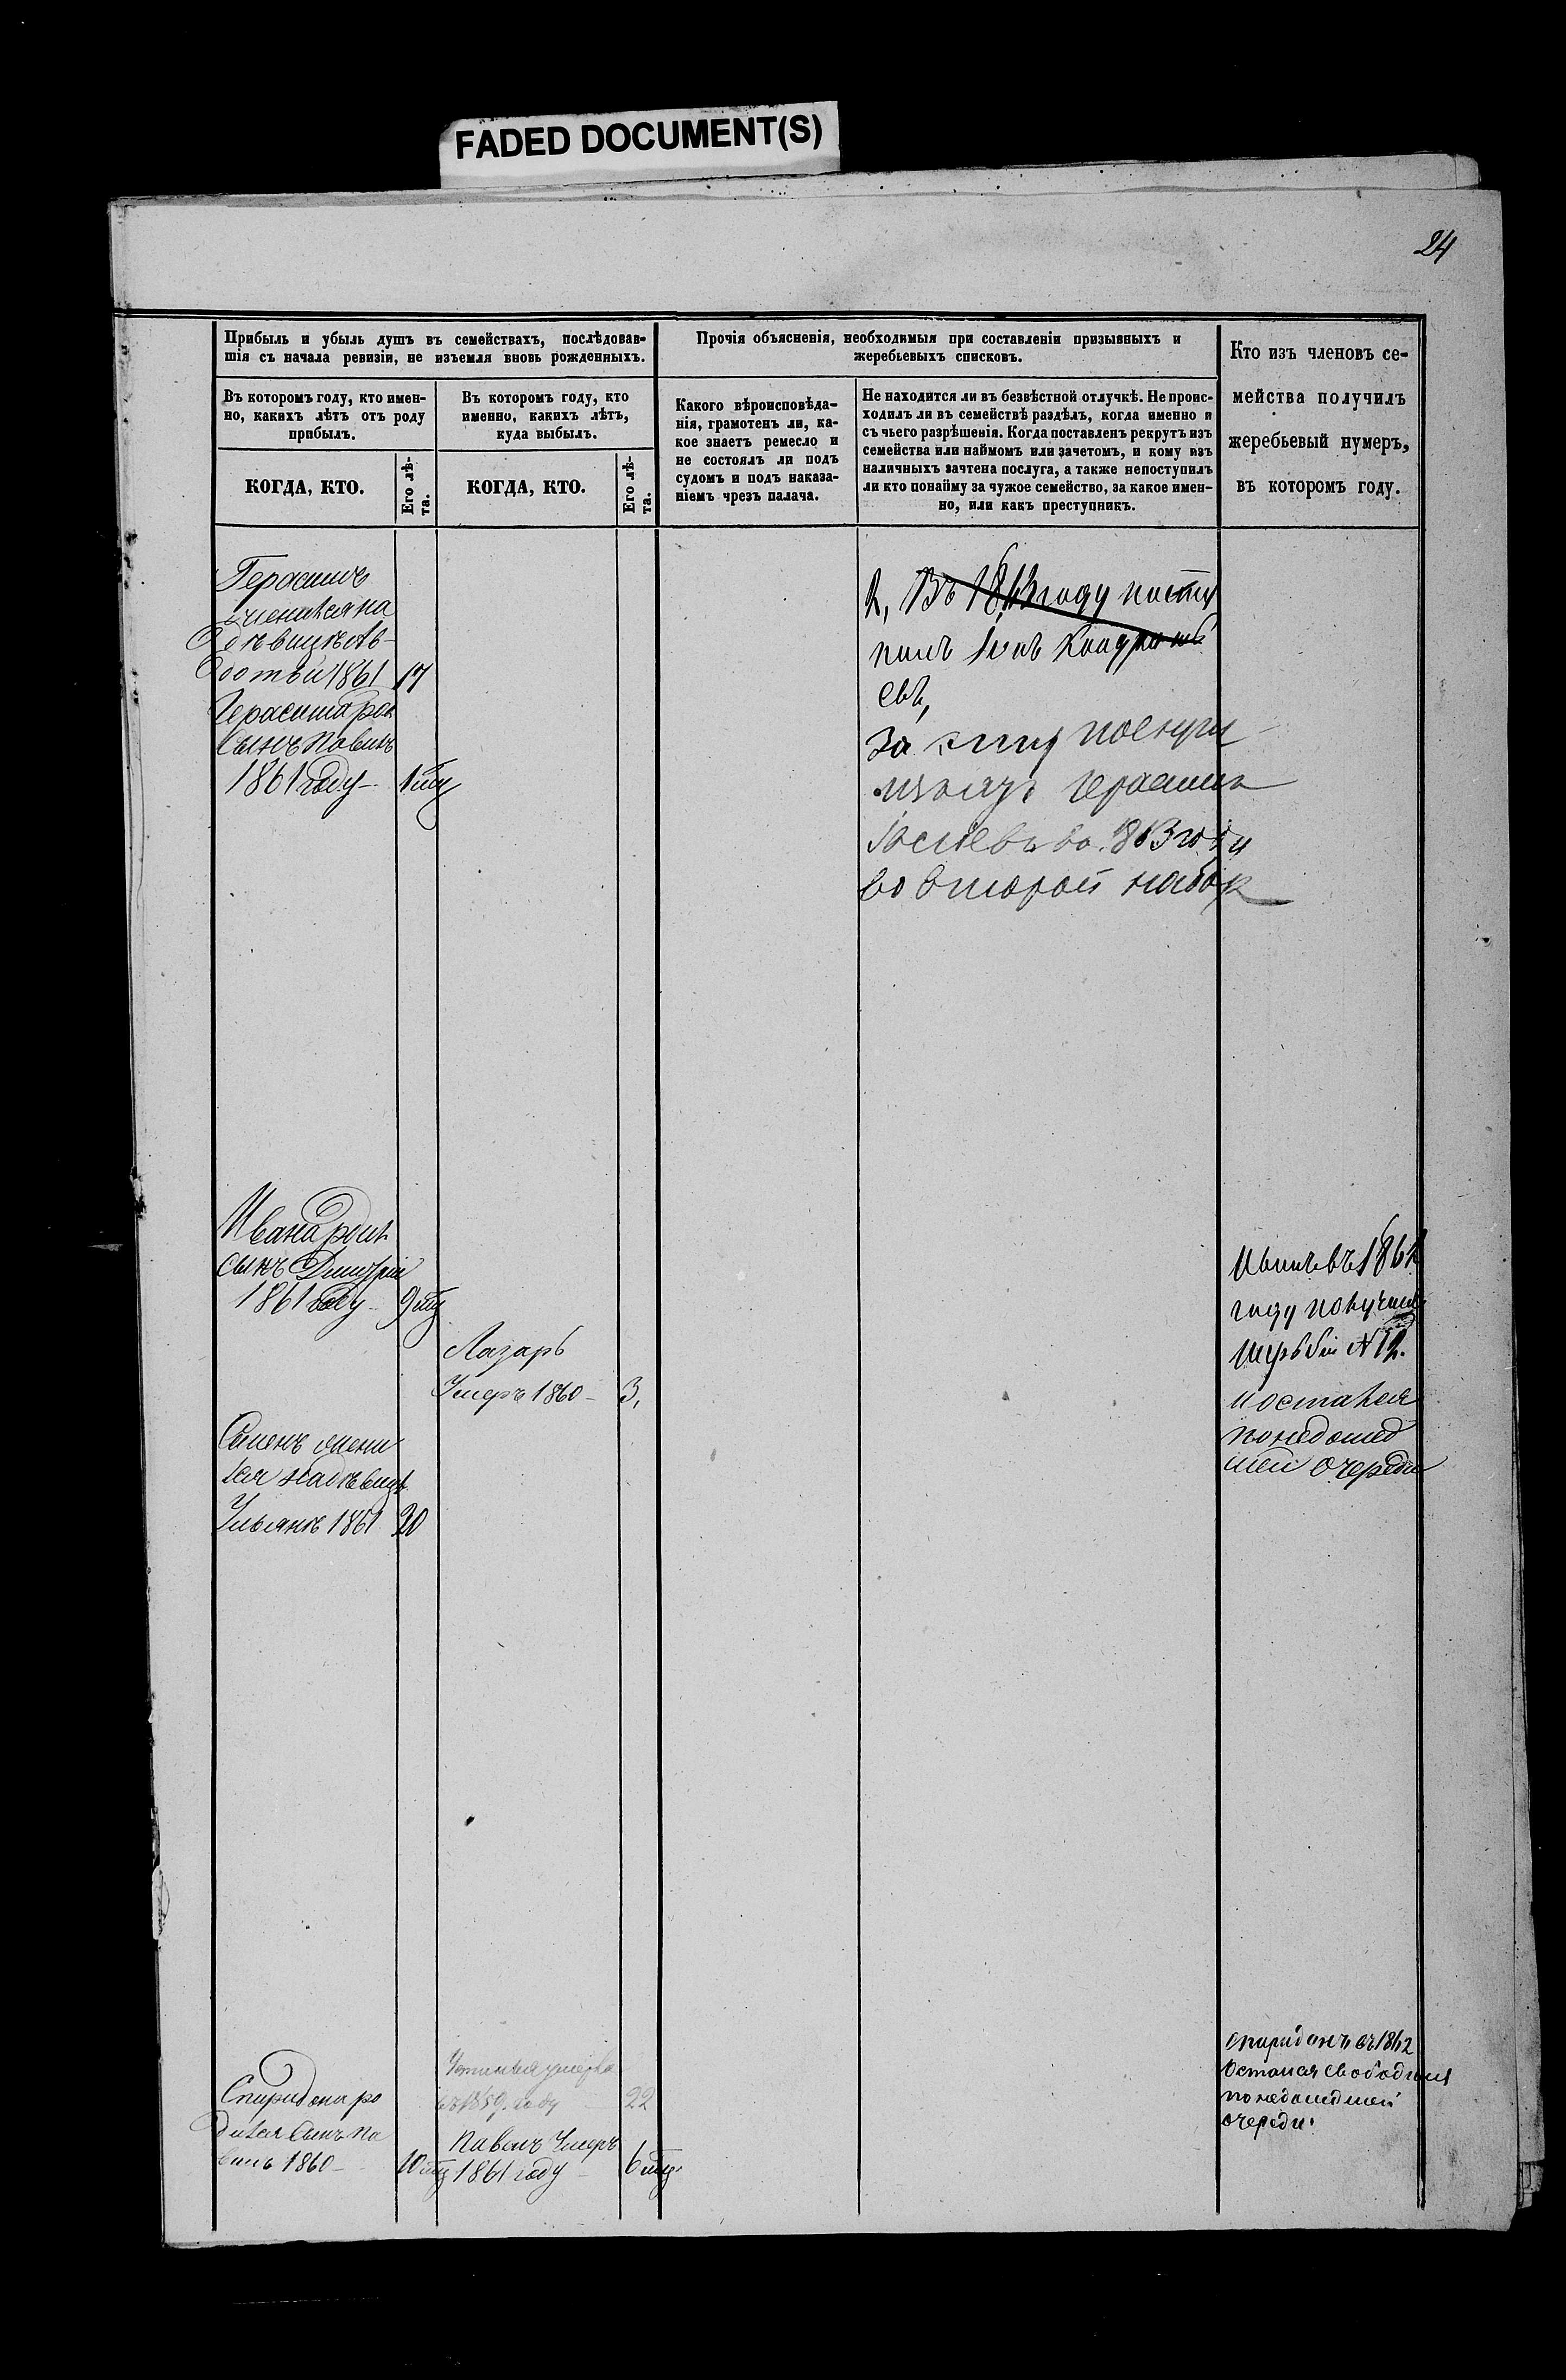 FADED DOCUMENT(S)
24
Прибыль и убыль душъ въ семействахъ, послѣдовав-
шія съ начала ревизіи, не изъемля вновь рожденныхъ.
Прочія объясненія, необходимыя при составленіи призывныхъ и
жеребьевыхъ списковъ.
Кто изъ членовъ се-
мейства получилъ
жеребьевый нумеръ,
въ которомъ году.
Въ которомъ году, кто имен-
но, какихъ лѣтъ отъ роду
прибылъ.
Въ которомъ году, кто
именно, какихъ лѣтъ,
куда выбылъ.
Какого вѣроисповѣда-
нія, грамотенъ ли, ка-
кое знаетъ ремесло и
не состоялъ ли подъ
судомъ и подъ наказа-
ніемъ чрезъ палача.
Не находится ли въ безвѣстной отлучкѣ. Не проис-
ходилъ ли въ семействѣ раздѣлъ, когда именно и
съ чьего разрѣшенія. Когда поставленъ рекрутъ изъ
семейства или наймомъ или зачетомъ, и кому изъ
наличныхъ зачтена послуга, а также непоступилъ
ли кто понайму за чужое семейство, за какое имен-
но, или какъ преступникъ.
КОГДА, КТО.
Его лѣ-
та.
КОГДА, КТО.
Его лѣ-
та.
Герасимъ
женился на
дѣвицѣ Ав-
дотьи 1861 17
Герасима род
сынъ Павилъ
1861 году 1 мц
2, Въ 1863 году посту
пилъ
евъ,
за
Герасимъ
1863 году
во второй набор
Ивана родил
сынъ Димутрій
1861 году 9 мц
Лазарь
Умеръ 1860 3,
Семенъ жени
лся на дѣвицѣ
Ульянѣ 1861 20
въ 1862
году получилъ
жребій N 12.
и остался
по недошед
шей очереди
Спиридона ро
дился сынъ Па
велъ 1860 10 мц
Устинья умерла
въ 1859 году 22
Павелъ Умеръ
1861 году 6 мц.
Спиридонъ въ 1862
остался свободным
по недошедшей
очереди.